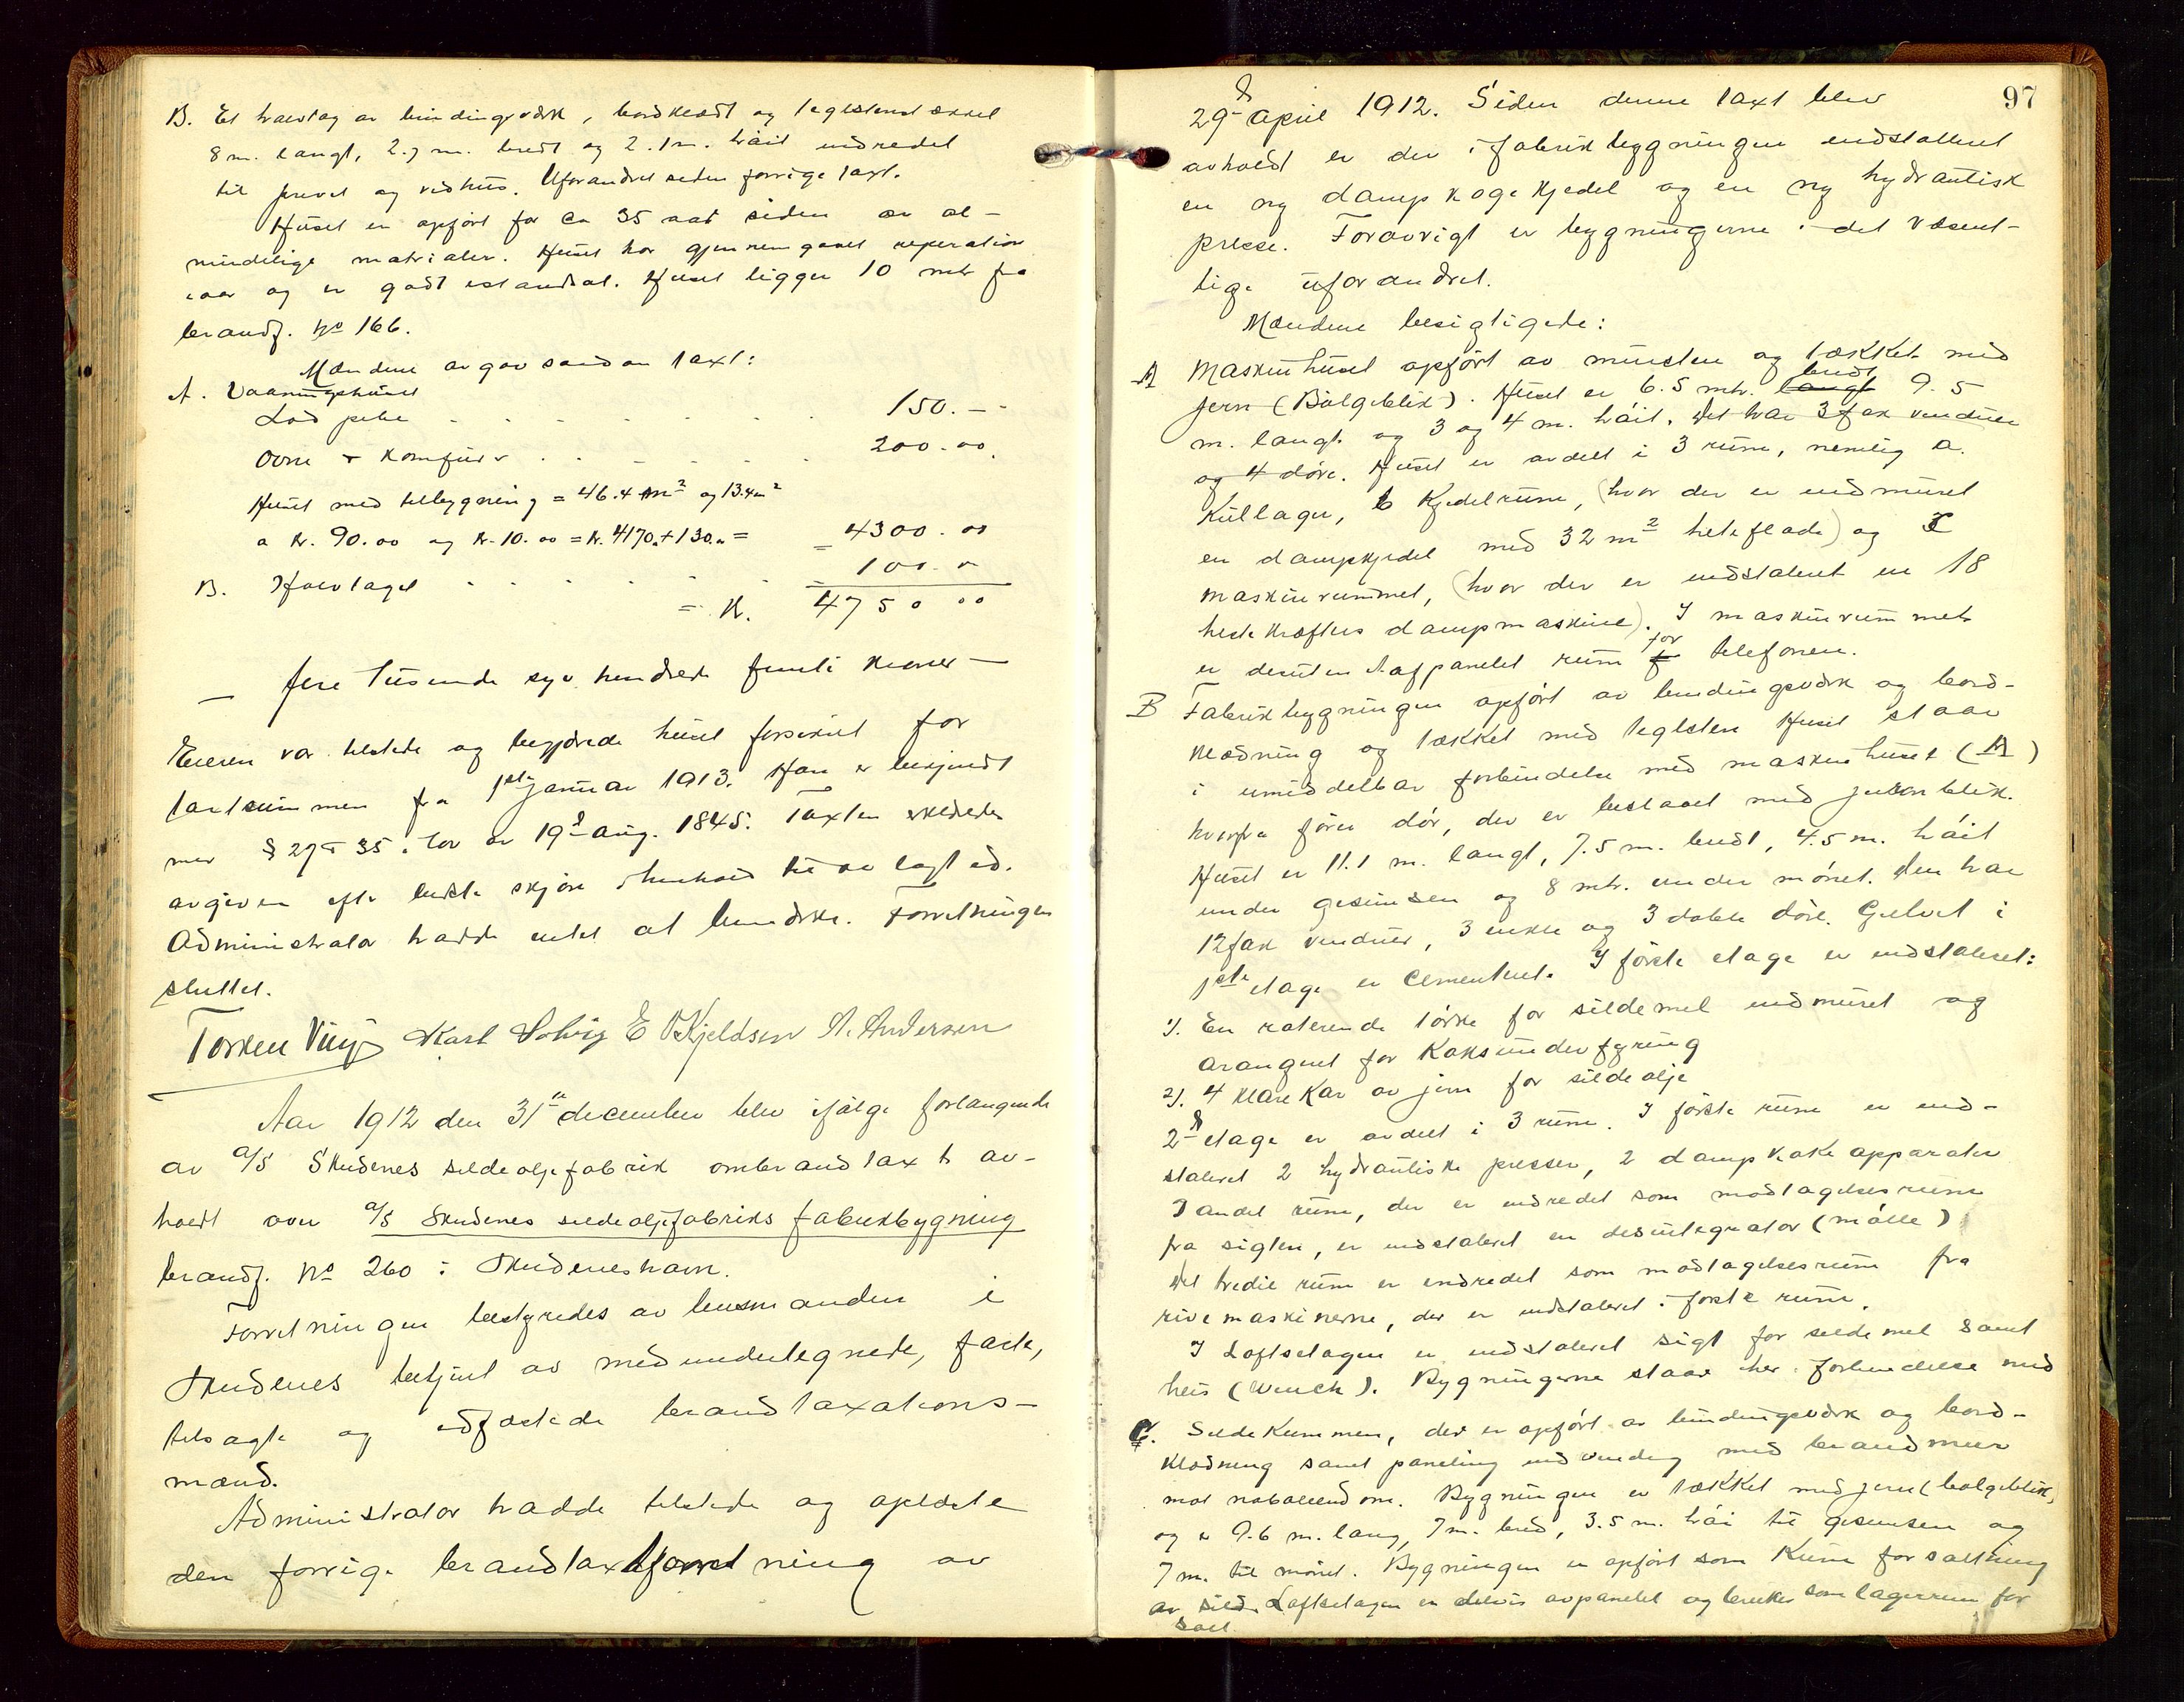 B. Et halvtag av bindingsværk, bordklædt og teglstenstækket
8 m. langt, 2.7 m. bredt og 2.1 m. høit indredet
til privet og vedhus. Uforandret siden forrige taxt.
Huset er opført for ca 35 aar siden av al-
mindelige matrialer. Huset har gjennemgaaet reperation
iaar og er godt istandsat. Huset ligger 10 mtr fra
brandf. No 166.
Mændene avgav saadan taxt:
A. Vaaningshuset
Lod pibe . . . . . . 150.-
Ovne + Komfuir . . . . . . 200.00.
Huset med tilbygning = 46.4 m2 og 13.4 m2
a Kr. 90.00 og Kr. 10.00 = Kr. 4170.+130. = 4300.00
B. Halvtaget . . . . . . = 100.00
= Kr. 4750 00
- fire tusende syv hundrede femti kroner -
Eieren var tilstede og begjærede huset forsikret for
taxtsummen fra 1ste januar 1913. Han er bekjendt
med § 27 & 35 i lov av 19de aug. 1845. Taxten erklæredes
avgiven efter bedste skjøn i henhold til avlagt ed.
Administrator hadde intet at bemærke. Forretningen
sluttet.
Torkel Karl Solvig E Kjeldsen A. Andersen
Aar 1912 den 31te december blev ifølge forlangende
av A/S Skudenes sildeoljefabrik ombrandtaxt av-
holdt over A/S Skudenes sildeoljefabriks fabrikbygning
brandf. No 260 i Skudeneshavn.
Forretningen bestyredes av lensmanden i
Skudenes betjent av medundertegnede, faste,
tilsagte og edfæstede brandtaxations-
mænd.
Administrator hadde tilstede og oplæste
den forrige brandtaxtforretning av
97
29de april 1912. Siden denne taxt blev
avholdt er der i fabrikbygningen indstalleret
en ny dampkogekjedel og en ny hydraulisk
presse. Forøvrigt er bygningerne i det væsent-
lige uforandret.
Mændene besigtigede:
A Maskinhuset opført av mursten og tækket med
jern (Bølgeblik). Huset er 6.5 mtr. langt bredt 9.5
m. langt og 3 og 4 m. høit. Det har 3 fax vinduer
og 4 døre. Huset er avdelt i 3 rum, nemlig a.
Kullager, b Kjedelrum, (hvor der er indmuret
en dampkjedel med 32 m2 heteflade) og c
maskinrummet, (hvor der er indstaleret en 18
hestekræfters dampmaskine). I maskinrummet
er desuten avpanelet rum for telefonen.
B Fabrikbygningen opført av bindingsværk og bord-
klædning og tækket med teglsten Huset staar
i umiddelbar forbindelse med maskinhuset (A)
hvorfra fører dør, der er beslaaet med jernblik.
Huset er 11.1 m. langt, 7.5 m. bredt, 4.5 m. høit
under gesimsen og 8 mtr. under mønet. Den har
12 fax vinduer, 3 enkle og 3 doble døre. Gulvet i
1ste etage er cementeret. I første etage er indstaleret:
1). En roterende tørke for sildemel indmuret og
arangeret for Koksunderfyring
2). 4 klare Kar av jern for sildeolje
2de etage er avdelt i 3 rum. I første rum er ind-
staleret 2 hydrauliske presser, 2 dampkoke apparater
I andet rum, der er indredet som modtagelsesrum
fra sigten, er indstaleret en desintegrator (mølle)
Det tredie rum er indredet som modtagelsesrum fra
rivemaskinerne, der er indstaleret i første rum.
I Loftsetagen er indstaleret sigt for sildemel samt
heis (Winch). Bygningerne staar her i forbindelse med
C. Sildekummen, der er opført av bindingsværk og bord-
klædning samt paneling indvendig med brandmur
mot naboeiendom. Bygningen er tækket med jern (bølgeblik)
og er 9.6 m. lang, 7 m. bred, 3.5 m. høi til gesimsen og
7 m. til mønet. Bygningen er opført som Kum for saltning
av sild. Loftsetagen er delvis avpanelet og brukes som lagerrum for
salt.